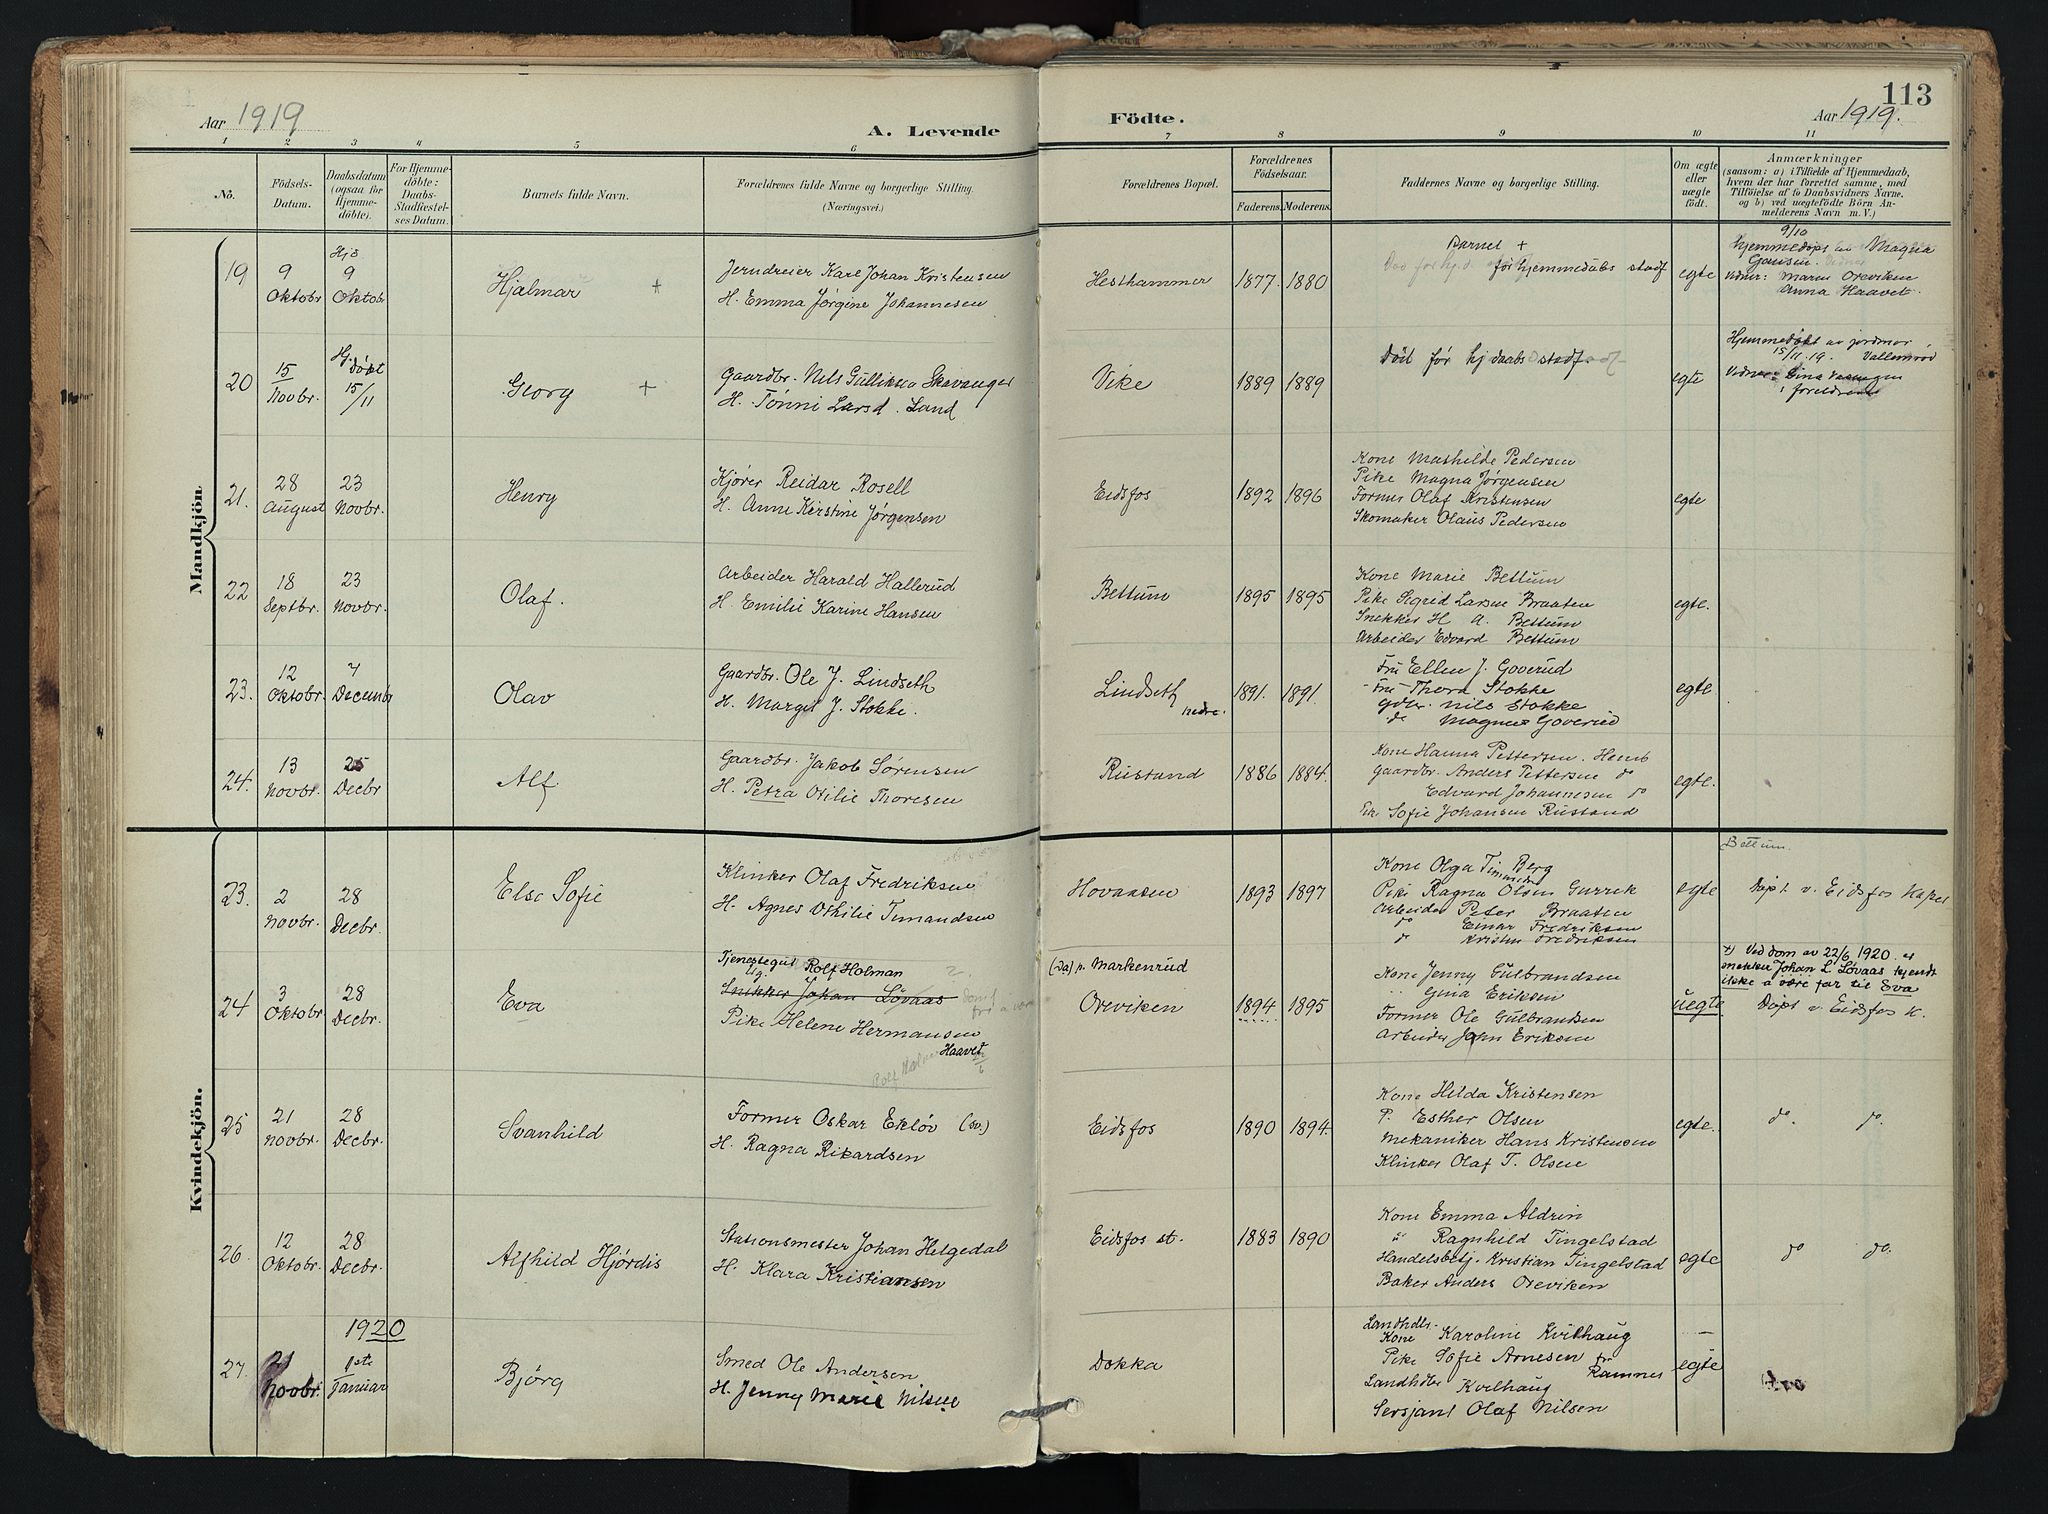 113
Aar 1919
A. Levende
Födte.
Aar 1919.
1 2 3 4 5 6 7 8 9 10 11
No.
Födsels-
Datum.
Daabsdatum
(ogsaa for
Hjemme-
döbte).
For Hjemme-
döbte:
Daabs-
Stadfæstel-
ses Datum.
Barnets fulde Navn.
Forældrenes fulde Navne og borgerlige Stilling.
(Næringsvei.)
Forældrenes Bopæl.
Forældrenes
Födselsaar.
Faderens. Moderens.
Faddernes Navne og borgerlige Stilling.
Om ægte
eller
uægte
födt.
Anmærkninger
(saasom: a) i Tilfælde af Hjemmedaab,
hvem der har forrettet samme, med
Tilföielse af to Daabsvidners Navne.
og b) ved uægtefödte Börn An-
melderens Navn m. V.)
Mandkjön
19
9
Oktobr
Hjd
9
Oktob
Hjalmar +
Jerndreier Karl Johan Kristensen
H. Emma Jørgine Johannesen
Hesthammer
1877. 1880
Barnet +
før hjemmedaabs stadf
egte
9/10
hjemmedøpt av Magna
Gausen.
Vidner: Maren Oreviken
Anna Haavet.
20
15
Novbr.
Hj.
Døbt
15/11
Georg +
Gaardbr. Nils Gulliksen Skavanger
H. Tønni Larsd. Land
Vike
1889 1889
Död før hj daabs stadf.
egte
Hjemmedøbt av jordmor
15/11.19. Vallemrød
Vidner: Gina
i foreldrene
21.
28
August
23
Novbr.
Henry
Kjører Reidar Rosell
H. Anne Kirstine Jørgensen
Eidsfos
1892 1896
Kone Mathilde Pedersen
Pike Magna Jørgensen
Former Olaf Kristensen
Skomaker Olaus Pedersen
egte
22
18
Septbr.
23
Novbr.
Olaf.
Arbeider Harald Hallerud
H. Emilie Karine Hansen
Bettum
1895 1895
Kone Marie Bettum
Pike Sigrid Larsen Braaten
Snekker H A. Bettum
Arbeider Edvard Bettum
egte.
23.
12
Oktobr.
7
Decembr
Olav
Gaardbr. Ole J. Lindseth
H. Margit J. Stokke.
Lindseth
nedre.
1891. 1891.
Fru Ellen J. Goverud
Fru Thora Stokke
gdbr. Nils Stokke
do Magnus Goverud
egte
24.
13
Novbr.
25
Decbr
Alf
Gaardbr. Jakob Sørensen
H. Petra Otilie Thoresen
Rustand
1886 1884.
Kone Hanna Pettersen. Hemb
Gaardbr. Anders Pettersen do
Edvard Johannesen do
Sofie Johansen Rustand
egte.
Kvindekjön.
23.
2
Novbr.
28
Decbr.
Else Sofie
Klinker Olaf Fredriksen
H. Agnes Othilie Tinandsen
Hovaasen
1893 1897
Kone Olga Timmerberg
Pike Ragna Olsen Gurrik
Arbeider Peter Braaten
do Einar Fredriksen
do Kristen Fredriksen
egte
Bettum.
Døpt v. Eidsfos Kapel
24
3
Oktobr.
28
Decbr.
Eva
Tjenestegut Rolf Holman
Ug.
Snikker Johan Løvaas
Pike Helene Hermansen
Haavet
(da) p. Markenrud
Oreviken
1894 1895
Kone Jenny Gulbrandsen
" Gina Eriksen
Former Ole Gulbrandsen
Arbeider John Eriksen
uegte
+) Ved dom av 22/6 1920. er
snekker Johan L. Løvaas kjendt
ikke å være far til Eva
Døpt v. Eidsfos K.
25
21
Novbr.
28
Decbr.
Svanhild
Former Oskar Ekløv (sv.)
H. Ragna Rikardsen
Eidsfos
1890 1894.
Kone Hilda Kristensen
P. Esther Olsen
Mekaniker Hans Kristensen
Klinker Olaf T. Olsen
egte.
do. do.
26.
12
Oktobr.
28
Decbr.
Alfhild Hjørdis
Stationsmester Johan Helgedal
H. Klara Kristiansen
Eidsfos st.
1883 1890
Kone Emma Aldrin
" Ragnhild Tingelstad
Handelsbetj. Kristian Tingelstad
Baker Anders Oreviken
egte
do do.
1920
27.
21
Novbr.
1ste
Januar
Bjørg
Smed Ole Andersen
H. Jenny Marie Nilsen
Dokka
Landhdlr.
Kone Karoline Kvilhaug
Pike Sofie Arnesen fr
Ramnes
Landhdler Kvilhaug
Sersjant Olaf Nilsen
—
egte